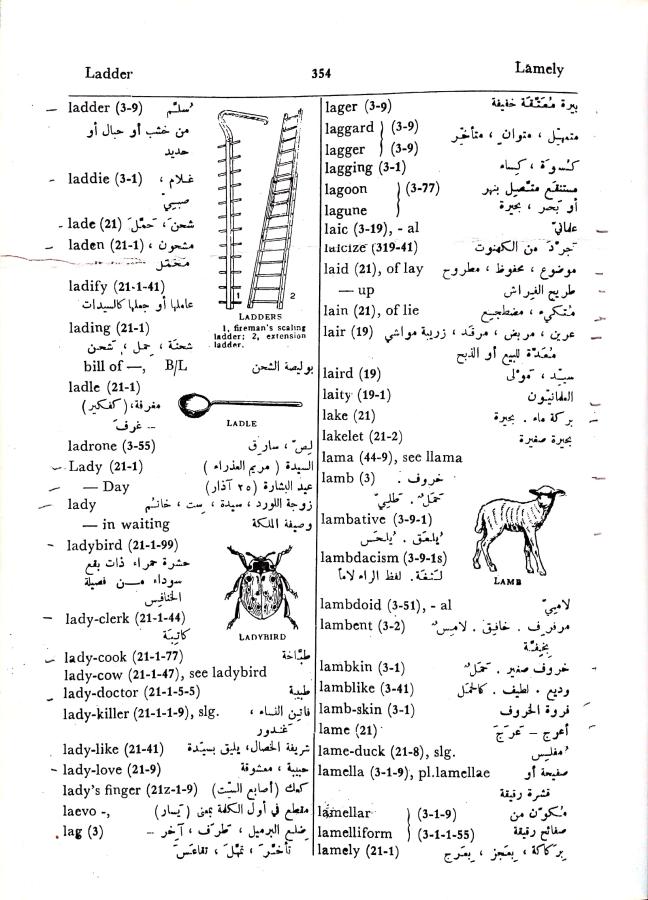 Ladder 354 Lamely
ladder (3-9) سلّم
من خشب أو حبال أو
حديد
laddie (3-1) غلام ،
صبيّ
lade (21) شحن ، حمّل
laden (21-1) ، مشحون
محمّل
ladify (21-1-41)
عاملها أو جعلها كالسيدات
lading (21-1)
شحنة ، حمل ، شحن
bill of —, B/L بوليصة الشحن
ladle (21-1)
مغرفة، (كفكير)
— غرف
ladrone (3-55) لصّ ، سارق
Lady (21-1) السيدة ( مريم العذراء )
— Day عيد البشارة (٢٥ آذار)
lady زوجة اللورد ، سيدة ، ست ، خانم
— in waiting وصيفة الملكة
ladybird (21-1-99)
حشرة حمراء ذات بقع
سوداء من فصيلة
الخنافس
lady-clerk (21-1-44)
كاتبة
lady-cook (21-1-77) طبّاخة
lady-cow (21-1-47), see ladybird
lady-doctor (21-1-5-5) طبيبة
lady-killer (21-1-1-9), slg. فاتن النساء ،
غندور
lady-like (21-41) شريفة الخصال، يليق بسيّدة
lady-love (21-9) حبيبة ، معشوقة
lady's finger (21z-1-9) كعك (أصابع الستّ)
laevo -, مقطع في أول الكلمة بمعنى (يسار)
lag (3) ضلع البرميل ، طرف ، آخر —
تأخّر ، تمهّل ، تقاعس
1 2
LADDERS
1, fireman's scaling
ladder; 2, extension
ladder.
LADLE
LADYBIRD
lager (3-9) بيرة معتّقة خفيفة
laggard (3-9) متمهّل ، متوان ، متأخّر
lagger (3-9)
lagging (3-1) كسوة ، كساء
lagoon (3-77) مستنقع متّصيل بنهر
lagune أو بحر ، بحيرة
laic (3-19), - al علمانيّ
laicize (319-41) جرّد من الكهنوت
laid (21), of lay موضوع ، محفوظ ، مطروح
— up طريح الفراش
lain (21), of lie متّكىء ، مضطجيع
lair (19) عرين ، مربض ، مرقد ، زريبة مواشي
معدّة للبيع أو الذبح
laird (19) سيّد ، مولى
laity (19-1) العلمانيّون
lake (21) بركة ماء . بحيرة
lakelet (21-2) بحيرة صغيرة
lama (44-9), see llama
lamb (3) خروف .
حمل . طليّ
lambative (3-9-1)
يلعق . يلحس
lambdacism (3-9-1s)
لثغة. لفظ الراء لاماً
LAMB
lambdoid (3-51), - al لاميّ
lambent (3-2) مرفرف . خافق . لامس
بخفّة
lambkin (3-1) خروف صغير . حمل
lamblike (3-41) وديع . لطيف . كالحمل
lamb-skin (3-1) فروة الخروف
lame (21) أعرج — عرّج
lame-duck (21-8), slg. مفليس
lamella (3-1-9), pl.lamellae صفيحة أو
قشرة رقيقة
lamellar (3-1-9) مكوّن من
lamelliform (3-1-1-55) صفائح رقيقة
lamely (21-1) بركاكة ، بعجز ، بعرج